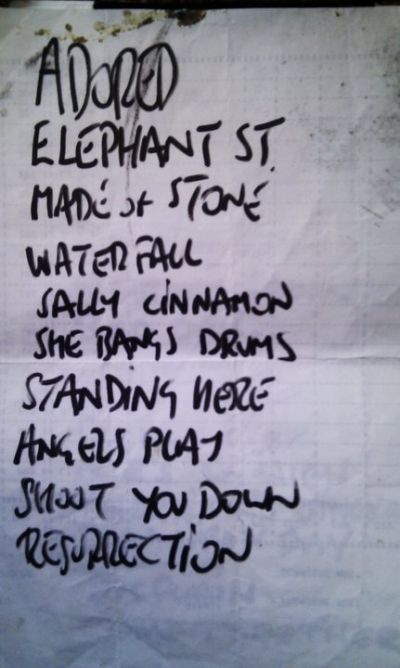 ADORED
ELEPHANT ST.
MADE OF STONE
WATERFALL
SALLY CINNAMON
SHE BANGS DRUMS
STANDING HERE
ANGELS PLAY
SHOOT YOU DOWN
RESURRECTION